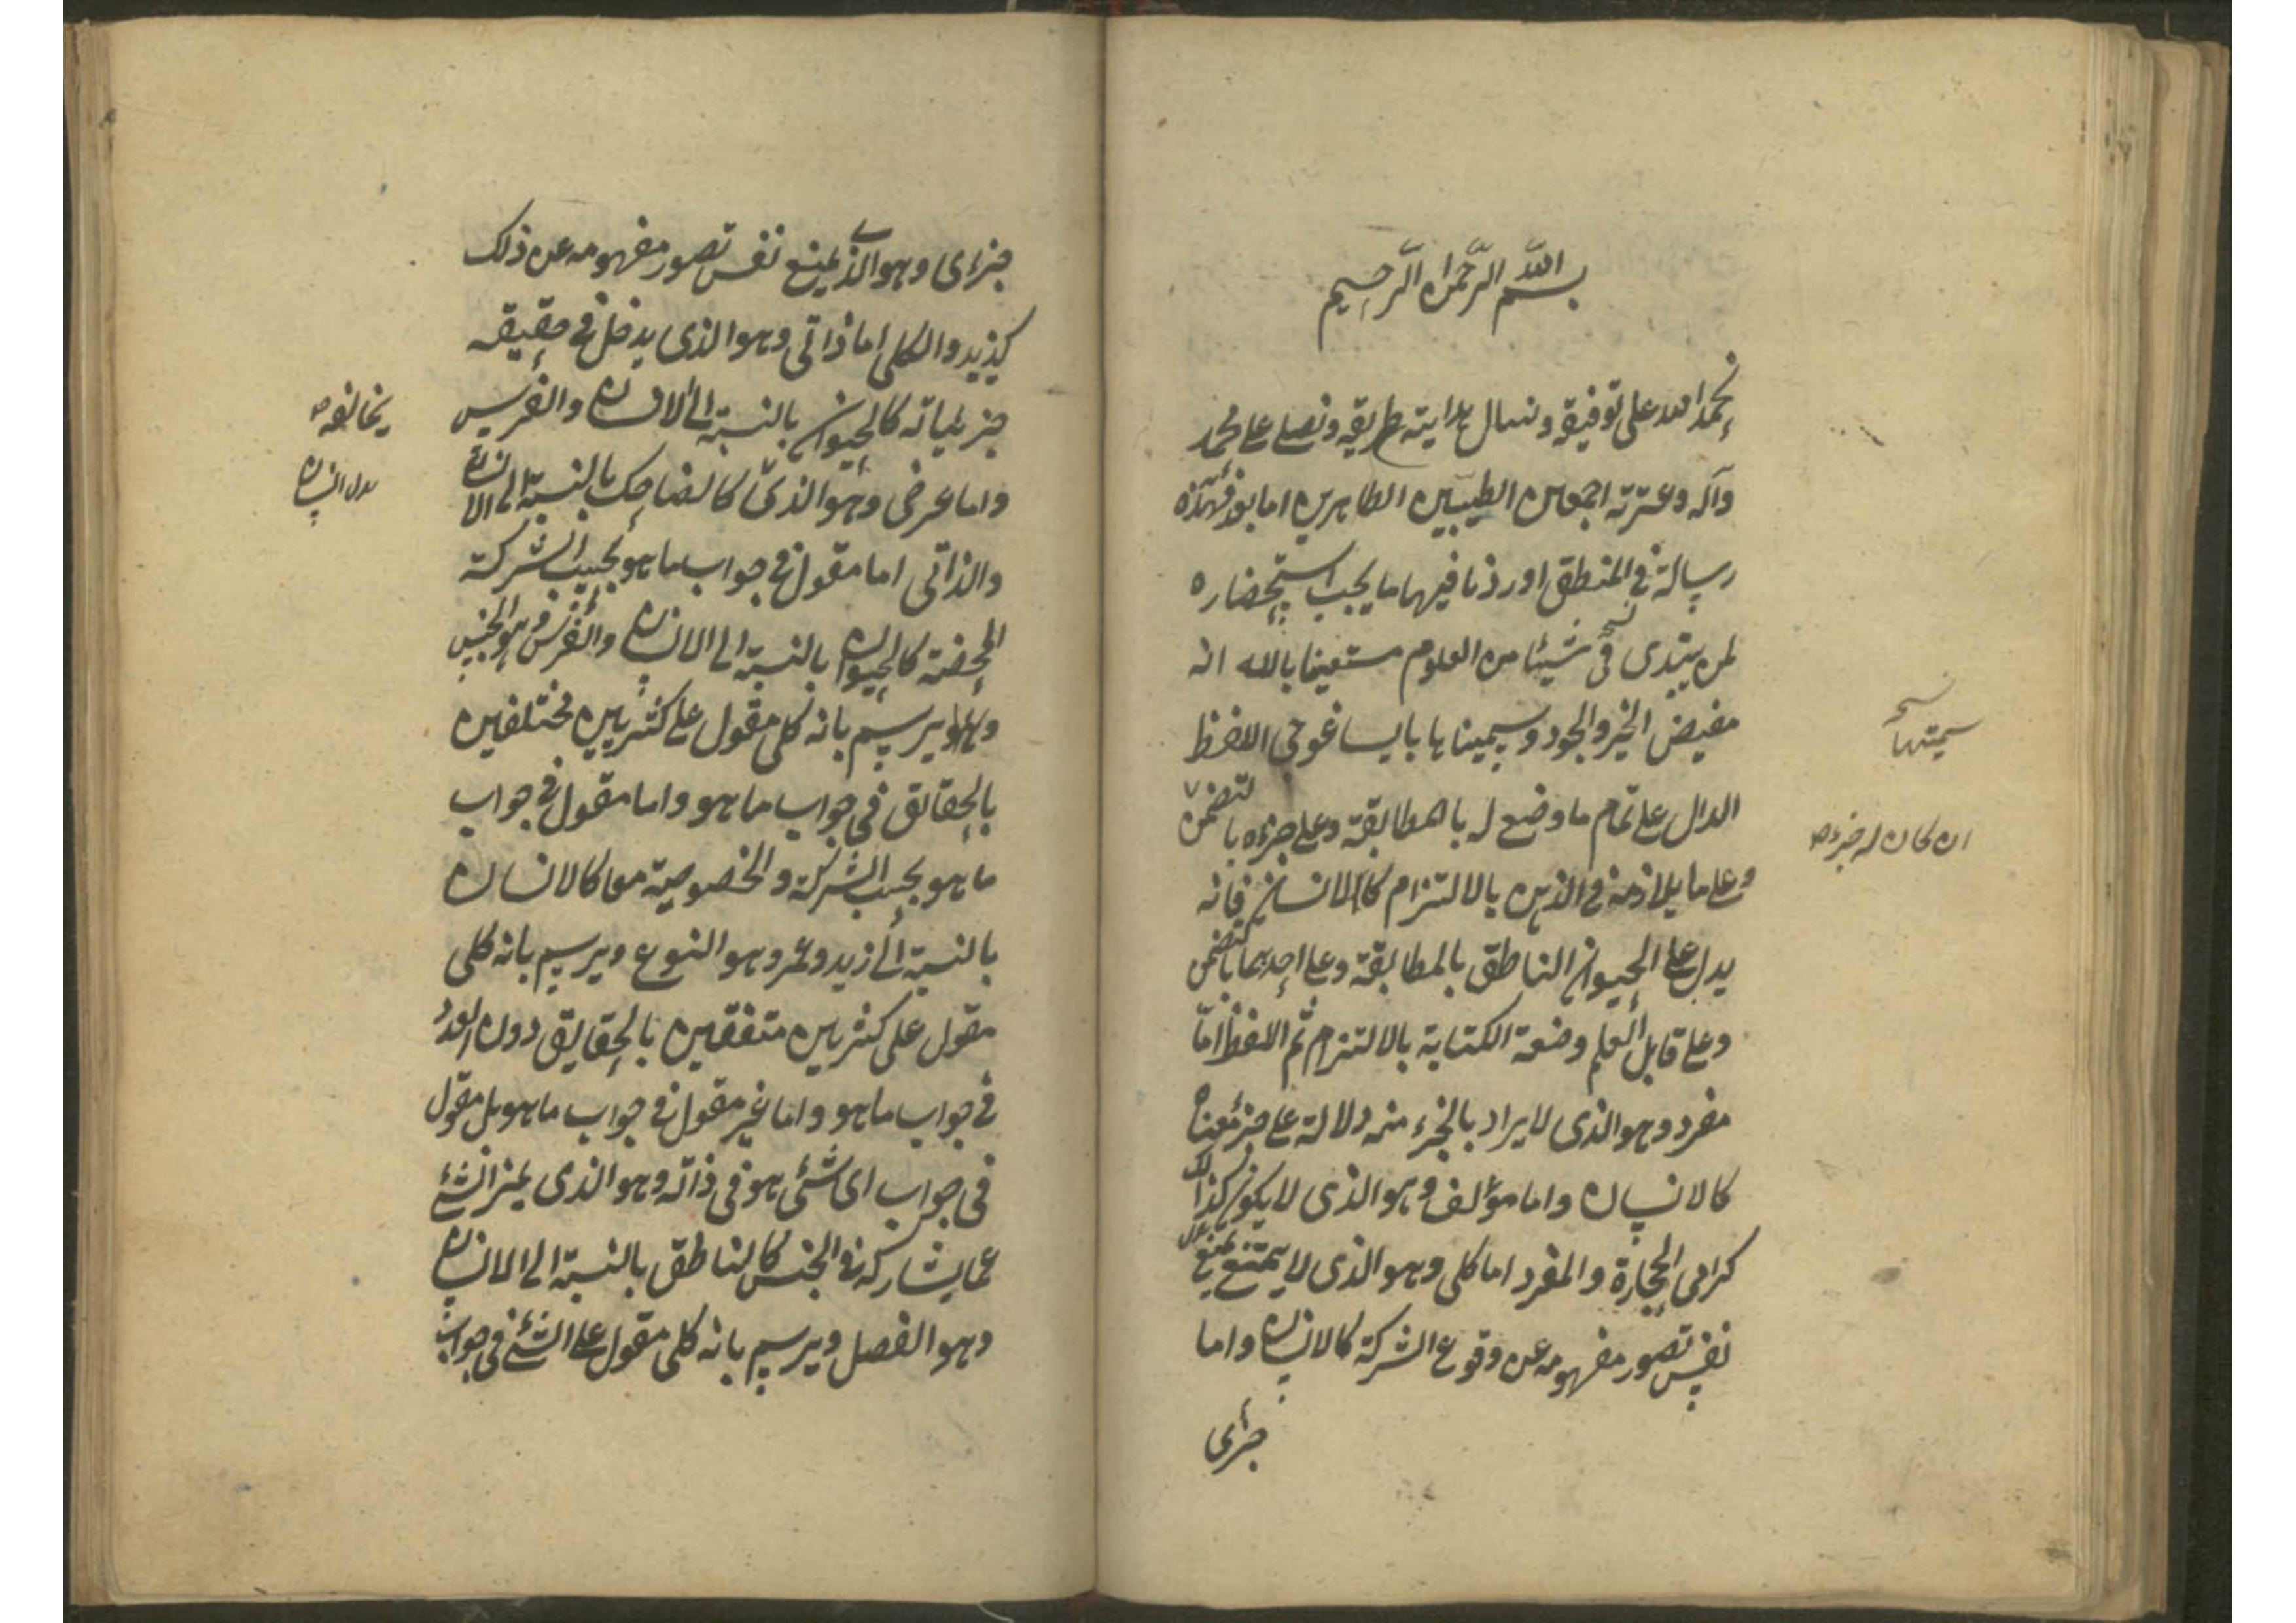 بسم الله الرحمن الرحيم
نحمد الله على توفيقه ونسال هداية طريقه ونصلي على محمد
وآله وعترته اجمعين الطيبين الطاهرين اما بعد فهذه
رسالة في المنطق اوردنا فيها ما يجب استحضاره
لمن يبتدى في شيئا من العلوم مستعينا بالله انه
مفيض الخير والجود وسميناها بايساغوجى اللفظ
سميتها
الدال على تمام ما وضع له بالمطابقة وعلى جزءه بالتضمن
ان كان له جزء
وعلى ما يلازمه في الذهن بالالتزام كالانسان فانه
يدل على الحيوان الناطق بالمطابقة وعلى احدهما بالتضمن
وعلى قابل العلم وصنعة الكتابة بالالتزام ثم اللفظ اما
مفرد وهو الذى لا يراد بالجزء منه دلالة على جزء معناه
كالانسان واما مؤلف وهو الذى لا يكون كذلك
كرامى الحجارة والمفرد اما كلى وهو الذى لا يمتنع يمنع
نفس تصور مفهومه عن وقوع الشركة كالانسان واما
جزئى
جزئى وهو الذى يمنع نفس تصور مفهومه عن ذلك
كزيد والكلى اما ذاتى وهو الذى يدخل في حقيقه
جزئياته كالحيوان بالنسبة الى الانسان والفرس
يخالفه
واما عرضى وهو الذى كالضاحك بالنسبة الى الانسان
والذاتى اما مقول في جواب ما هو بحسب الشركة
المحضة كالحيوان بالنسبة الى الانسان والفرس وهو الجنس
ويرسم بانه كلى مقول على كثيرين مختلفين
بالحقايق في جواب ما هو واما مقول في جواب
ما هو بحسب الشركة والخصوصية معا كالانسان
بالنسبة الى زيد وعمرو وهو النوع ويرسم بانه كلى
مقول على كثيرين متفقين بالحقايق دون العدد
في جواب ما هو واما غير مقول في جواب ما هو بل مقول
في جواب اى شئ هو في ذاته وهو الذى يميز الشئ
عما يشاركه في الجنس كالناطق بالنسبة الى الانسان
وهو الفصل ويرسم بانه كلى مقول على الشئ في جواب